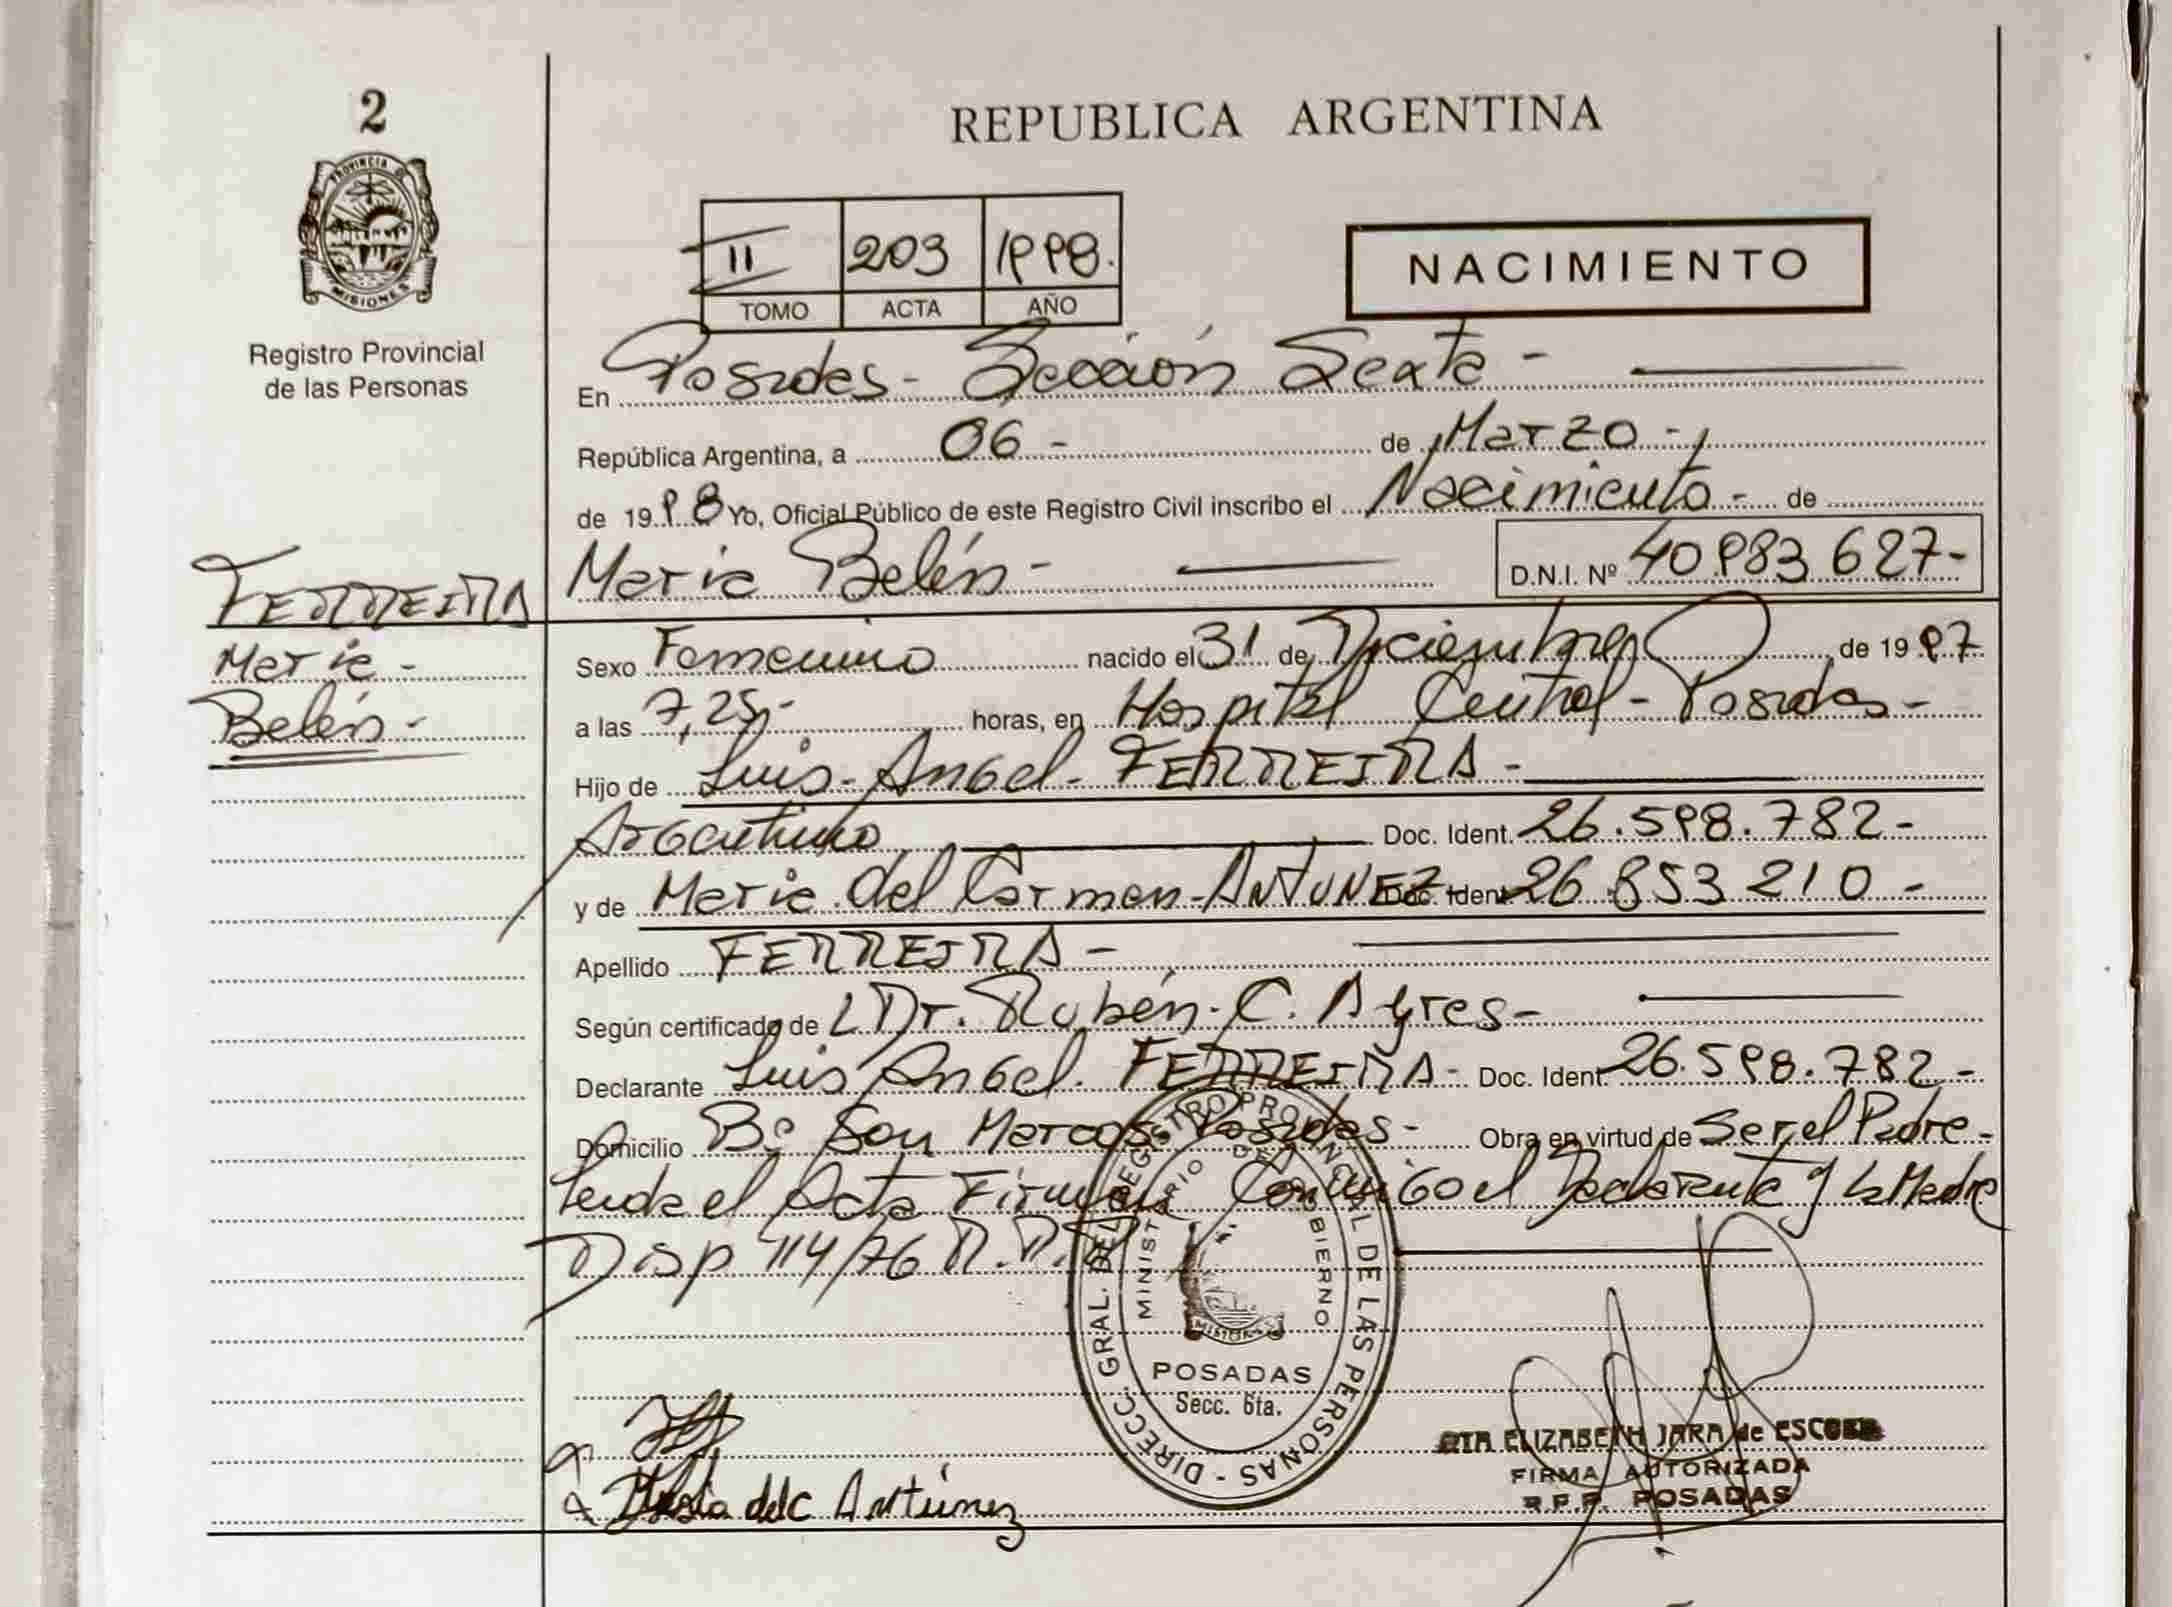 2
PROVINCIA DE
MISIONES
Registro Provincial
de las Personas
REPUBLICA ARGENTINA
II 203 1998.
TOMO ACTA AÑO
NACIMIENTO
En Posadas - Sección Sexta -
República Argentina, a 06 - de Marzo -
de 1998 Yo, Oficial Público de este Registro Civil inscribo el Nacimiento - de
Maria Belén - D.N.I. Nº 40.983.627-
FERREIRA
Maria -
Belén -
Sexo Femenino nacido el 31 de Diciembre de 1997
a las 7,25,- horas, en Hospital Central - Posadas -
Hijo de Luis - Angel - FERREIRA -
Argentino Doc. Ident. 26.598.782-
y de Maria del Carmen - ANTUNEZ Doc. Ident. 26.853.210 -
Apellido FERREIRA -
Según certificado de L Dr. Rubén - C. Ayres -
Declarante Luis Angel. FERREIRA - Doc. Ident. 26.598.782 -
Domicilio Bº San Marcos Posadas - Obra en virtud de Ser el Padre -
Leida el Acta Firman Conmigo el Declarante y la Madre
Disp 114/76 R.P.
DIRECC. GRAL. DEL REGISTRO PROVINCIAL DE LAS PERSONAS -
MINISTERIO DE GOBIERNO
MISIONES
POSADAS
Secc. 6ta.
Maria del C Antúnez
ELIZABETH JARA de ESCOBAR
FIRMA AUTORIZADA
R.P.P. POSADAS